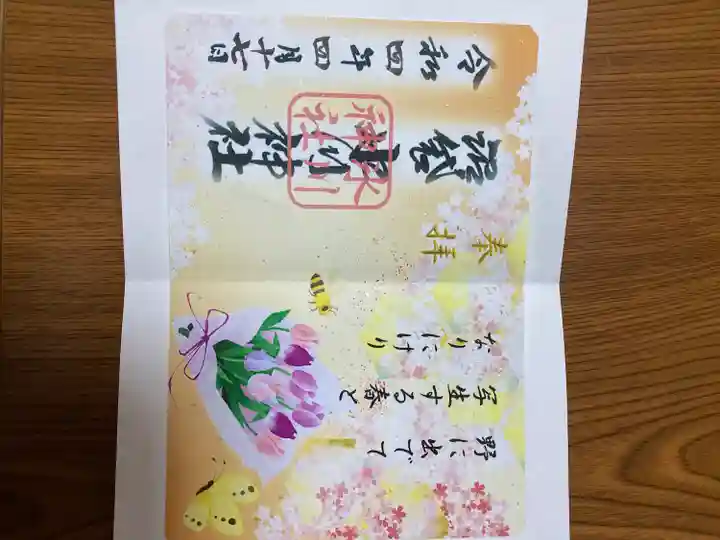 野に出でて
写生する春と
なりにけり
奉拝
沼袋氷川神社
氷川神社
令和四年四月十七日